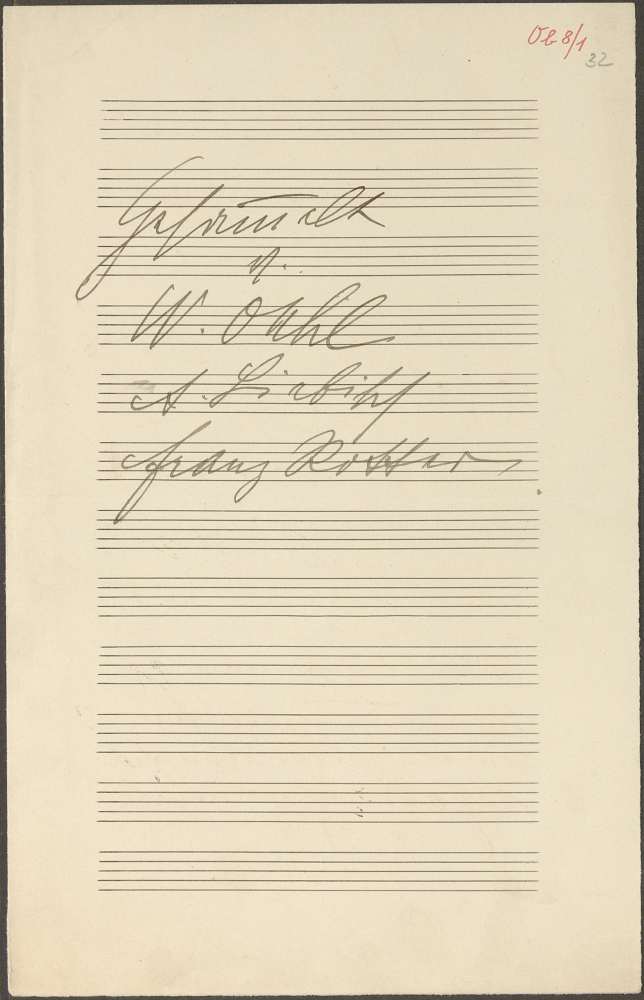 Ob 8/1
32
Gesammelt
v.
W. Oehl
A. Liebisch
Franz Rotter